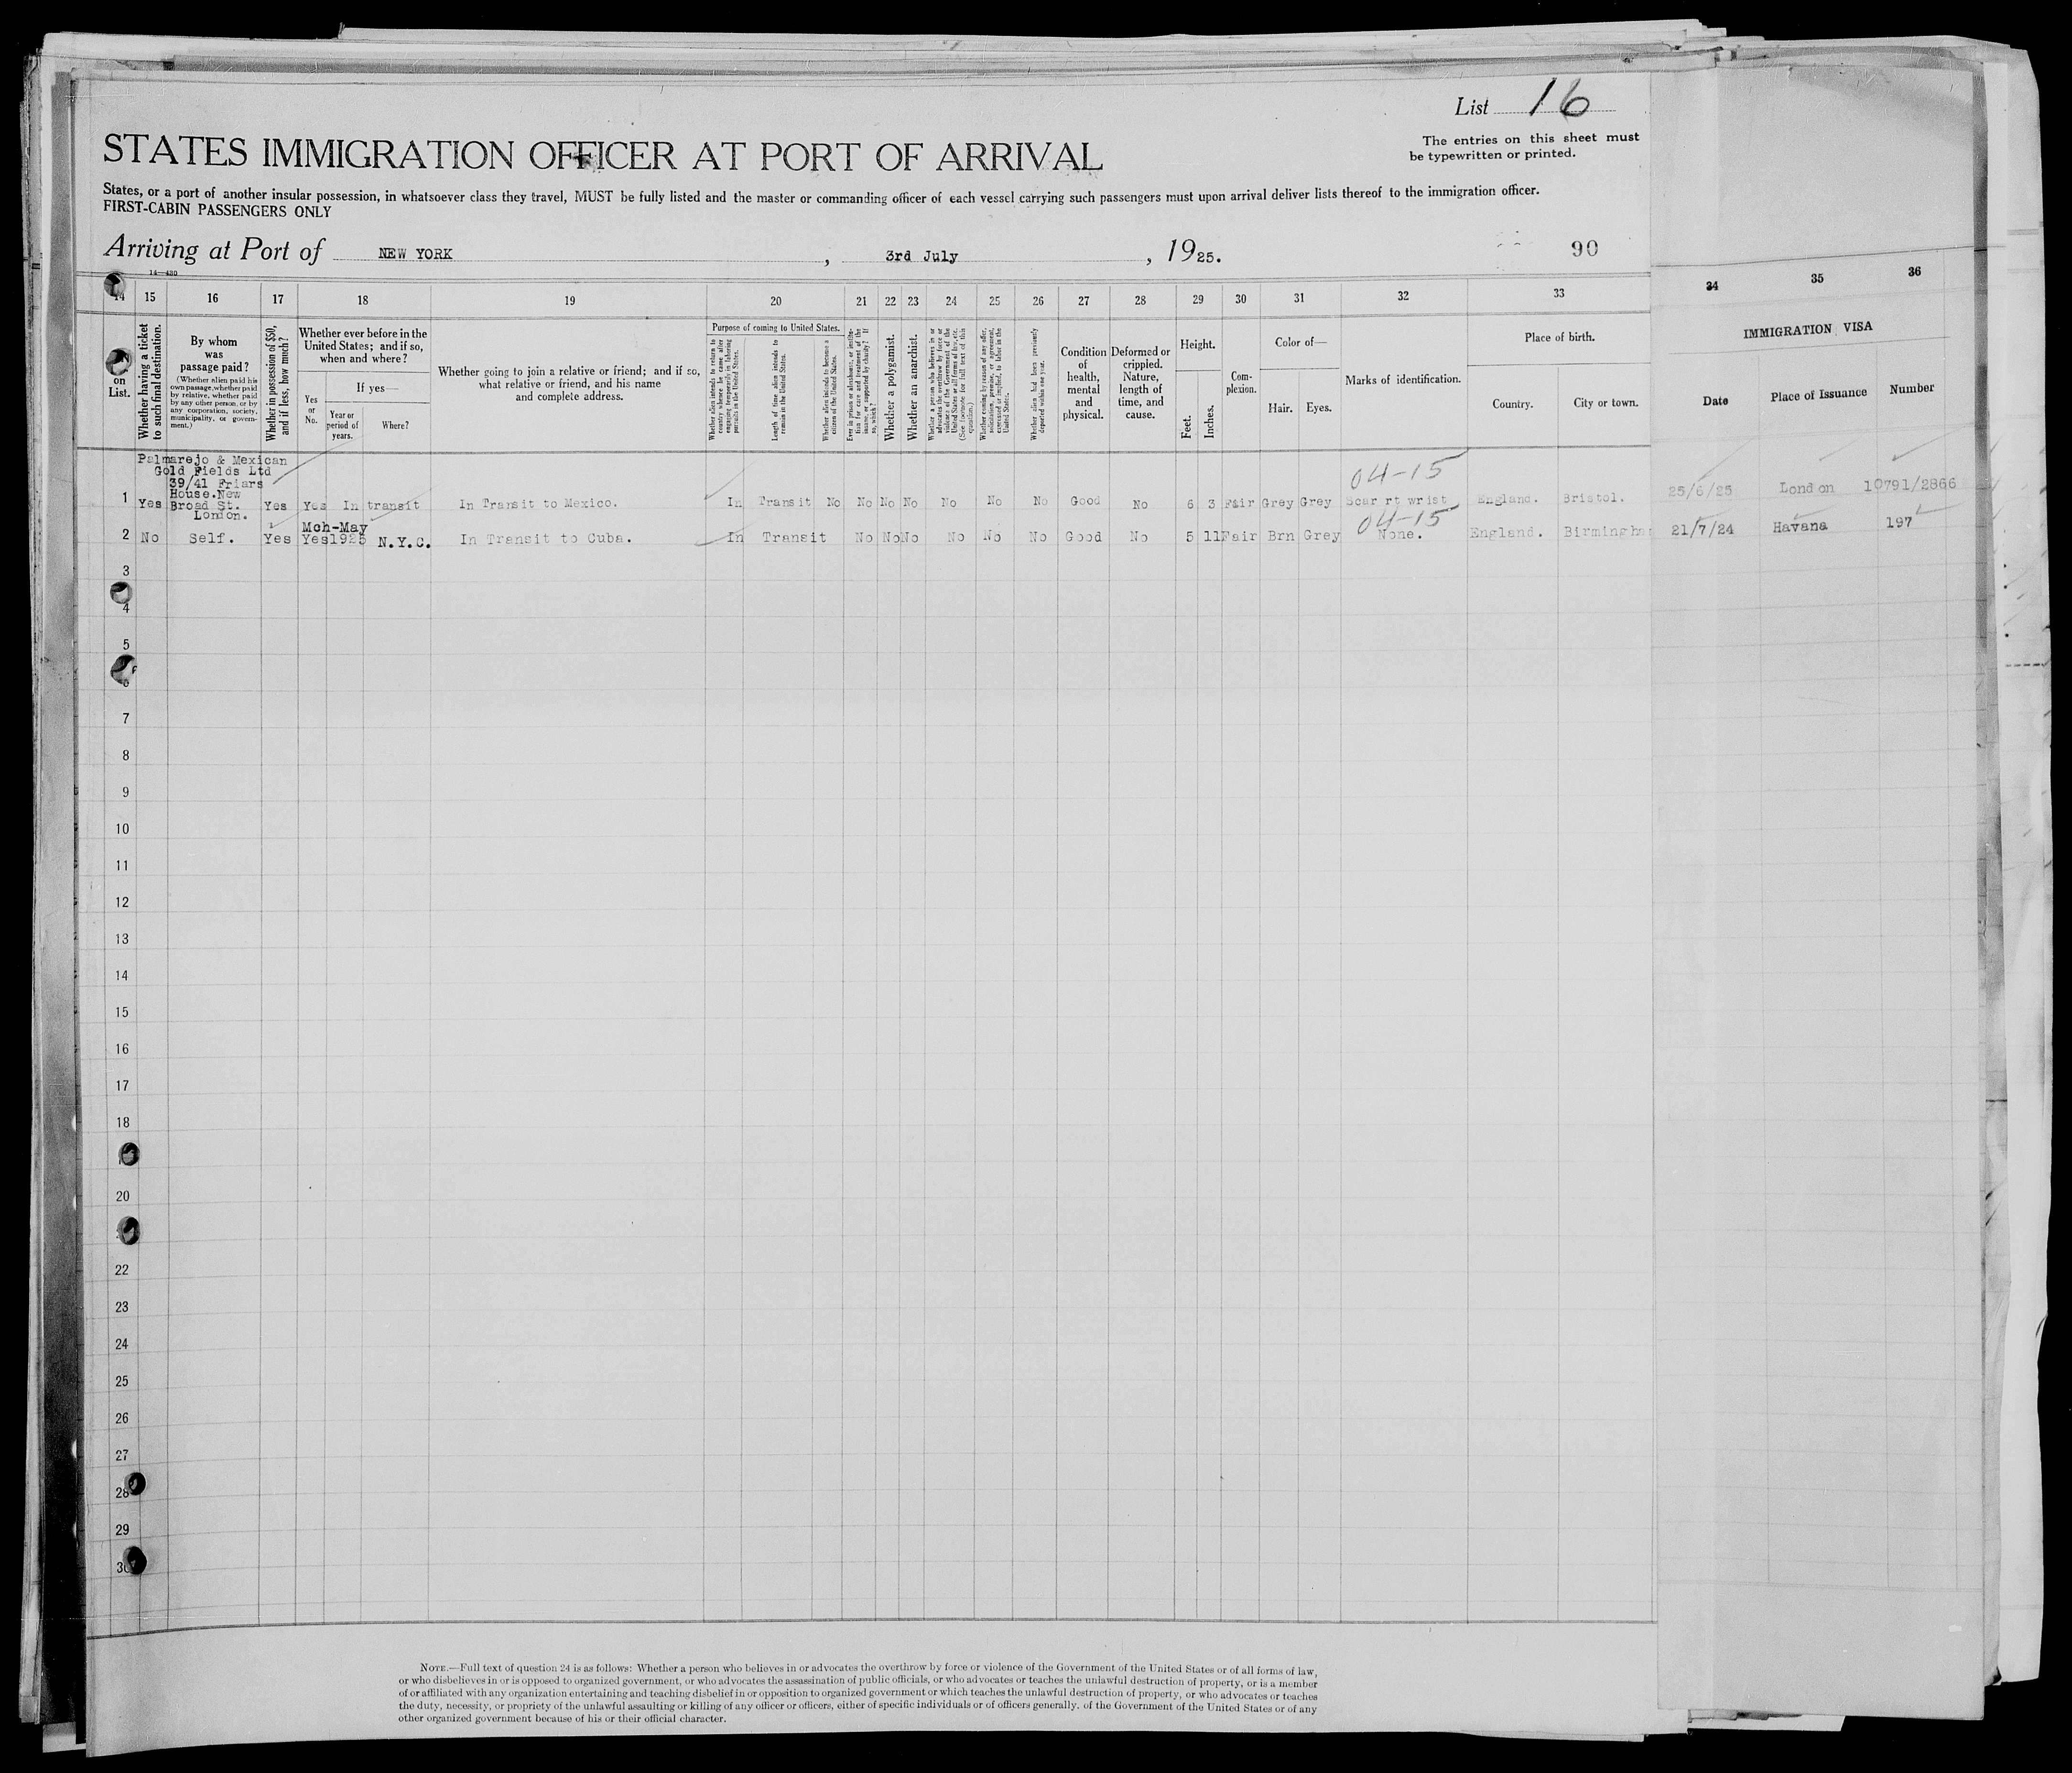 List 16
The entries on this sheet must
be typewritten or printed.
STATES IMMIGRATION OFFICER AT PORT OF ARRIVAL
States, or a port of another insular possession, in whatsoever class they travel, MUST be fully listed and the master or commanding officer of each vessel carrying such passengers must upon arrival deliver lists thereof to the immigration officer.
FIRST-CABIN PASSENGERS ONLY
Arriving at Port of NEW YORK, 3rd July, 1925.
90
14—430
14 15 16 17 18 19 20 21 22 23 24 25 26 27 28 29 30 31 32 33 34 35 36
on
List.
Whether having a ticket
to such final destination.
By whom
was
passage paid?
(Whether alien paid his
own passage, whether paid
by relative, whether paid
by any other person, or by
any corporation, society,
municipality, or govern-
ment.)
Whether in possession of $50,
and if less, how much?
Whether ever before in the
United States; and if so,
when and where?
Yes
or
No.
If yes—
Year or
period of
years.
Where?
Whether going to join a relative or friend; and if so,
what relative or friend, and his name
and complete address.
Purpose of coming to United States.
Whether alien intends to return to
country whence he came after
engaging temporarily in laboring
pursuits in the United States.
Length of time alien intends to
remain in the United States.
Whether alien intends to become a
citizen of the United States.
Ever in prison or almshouse, or institu-
tion for care and treatment of the
insane, or supported by charity? If
so, which?
Whether a polygamist.
Whether an anarchist.
Whether a person who believes in or
advocates the overthrow by force or
violence of the Government of the
United States or all forms of law, etc.
(See footnote for full text of this
question.)
Whether coming by reason of any offer,
solicitation, promise, or agreement,
expressed or implied, to labor in the
United States.
Whether alien had been previously
deported within one year.
Condition
of
health,
mental
and
physical.
Deformed or
crippled.
Nature,
length of
time, and
cause.
Height.
Feet.
Inches.
Com-
plexion.
Color of—
Hair. Eyes.
Marks of identification.
Place of birth.
Country. City or town.
IMMIGRATION VISA
Date Place of Issuance Number
Palmarejo & Mexican
Gold Fields Ltd
39/41 Friars
House.New
Broad St.
London.
04-15
1 Yes Yes Yes In transit In Transit to Mexico. In Transit No No No No No No No Good No 6 3 Fair Grey Grey Scar rt wrist England. Bristol. 25/6/25 London 10791/2866
Mch-May
04-15
2 No Self. Yes Yes 1925 N.Y.C. In Transit to Cuba. In Transit No No No No No No Good No 5 11 Fair Brn Grey None. England. Birmingham 21/7/24 Havana 197
3
4
5
7
8
9
10
11
12
13
14
15
16
17
18
20
22
23
24
25
26
27
28
29
30
NOTE.—Full text of question 24 is as follows: Whether a person who believes in or advocates the overthrow by force or violence of the Government of the United States or of all forms of law,
or who disbelieves in or is opposed to organized government, or who advocates the assassination of public officials, or who advocates or teaches the unlawful destruction of property, or is a member
of or affiliated with any organization entertaining and teaching disbelief in or opposition to organized government or which teaches the unlawful destruction of property, or who advocates or teaches
the duty, necessity, or propriety of the unlawful assaulting or killing of any officer or officers, either of specific individuals or of officers generally. of the Government of the United States or of any
other organized government because of his or their official character.